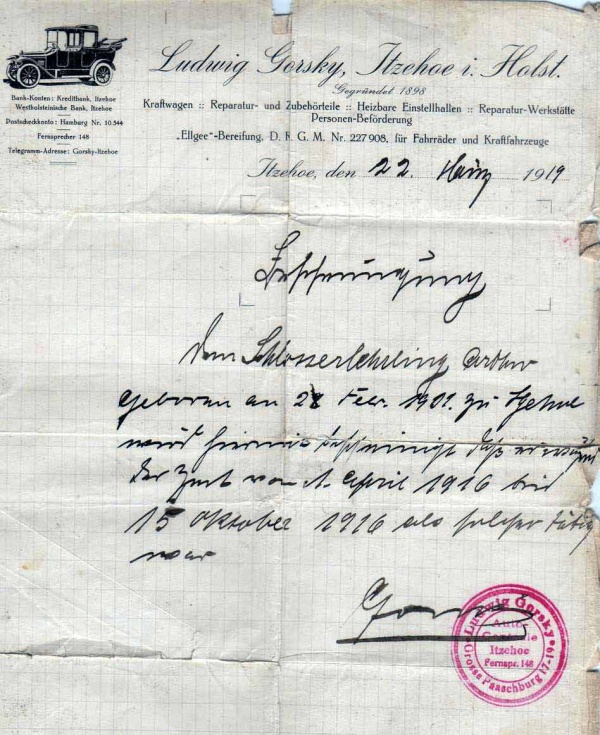 Ludwig Gorsky, Itzehoe i. Holst.
Gegründet 1898
Bank-Konten: Kreditbank, Itzehoe
Westholsteinische Bank, Itzehoe
Postscheckkonto: Hamburg Nr. 10.544
Fernsprecher 148
Telegramm-Adresse: Gorsky-Itzehoe
Kraftwagen :: Reparatur- und Zubehörteile :: Heizbare Einstellhallen :: Reparatur-Werkstätte
Personen-Beförderung
„Ellgee“-Bereifung, D. R. G. M. Nr. 227 908, für Fahrräder und Kraftfahrzeuge
Itzehoe, den 22. März 1919
Bescheinigung
Dem Schlosserlehrling
geboren am 28 Febr. 1901. zu Itzehoe
wird hiermit bescheinigt daß er
der Zeit vom 1. April 1916 bis
15 Oktober 1916 als solcher tätig
war
Gorsky
Ludwig Gorsky
Auto-
Itzehoe
Fernspr. 148
Grosse Paaschburg 17-19